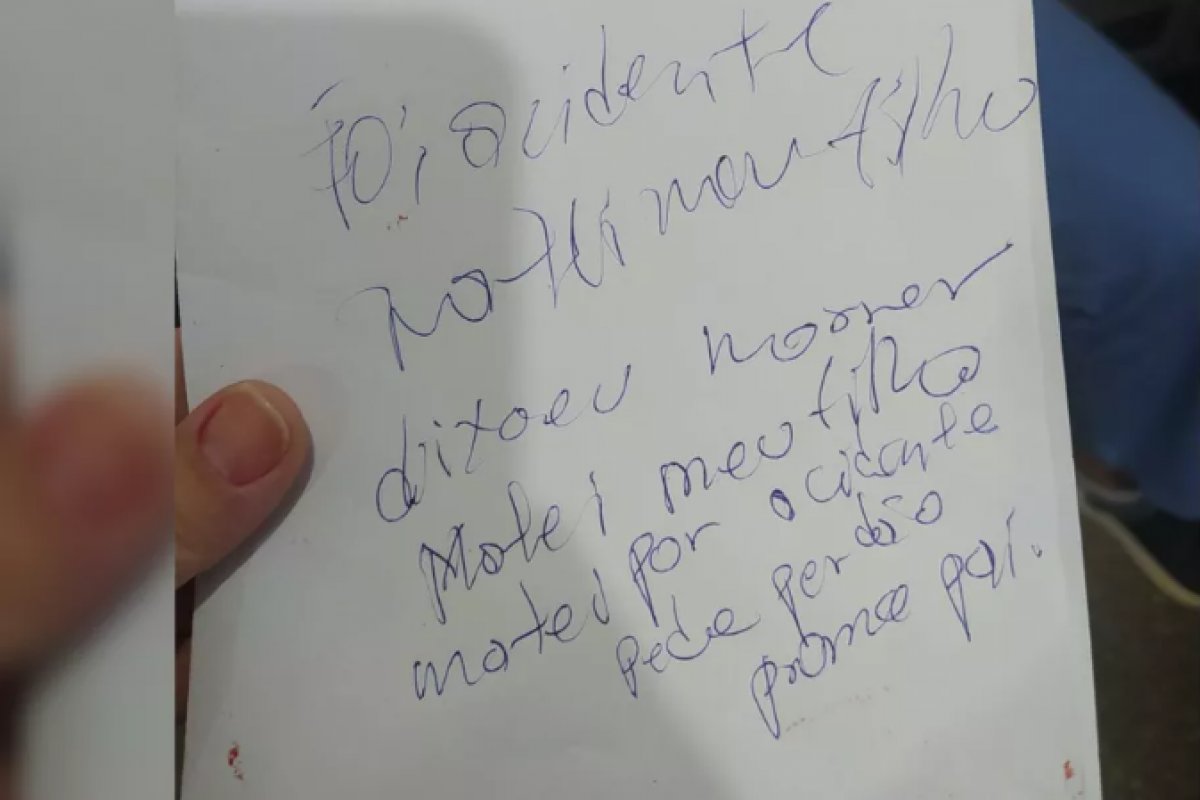 Foi acidente
Matei meu filho
dixaeu morrer
Matei meu filho
matei por acidente
pede perdão
prame pai.